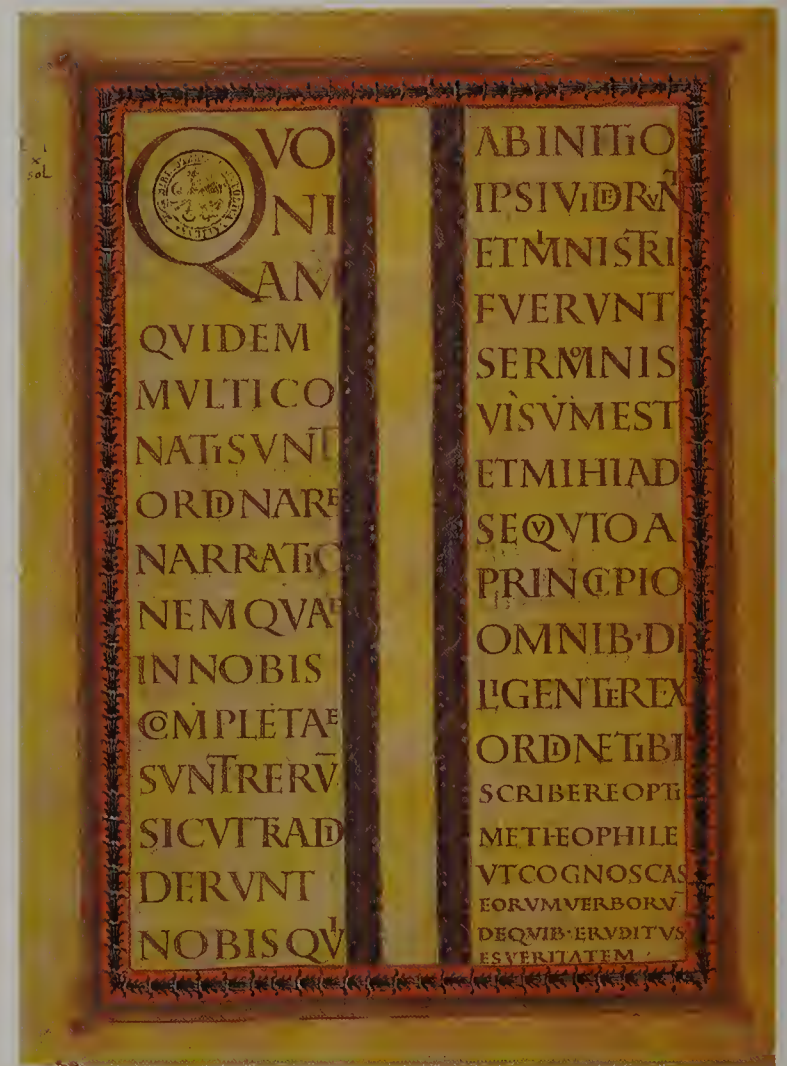 QVO
NI
AM
QVIDEM
MVLTI CO
NATI SVNT
ORDINARE
NARRATIO
NEM QVAE
IN NOBIS
COMPLETAE
SVNT RERV̄
SICVT TRADI
DERVNT
NOBIS QVI
AB INITIO
IPSI VIDERVN̄
ET MINISTRI
FVERVNT
SERMONIS
VISVM EST
ET MIHI AD
SEQVVTO A
PRINCIPIO
OMNIB· DI
LIGENTER EX
ORDINE TIBI
SCRIBERE OPTI
ME THEOPHILE
VT COGNOSCAS
EORVM VERBORV̄
DE QVIB· ERVDITVS
ES VERITATEM